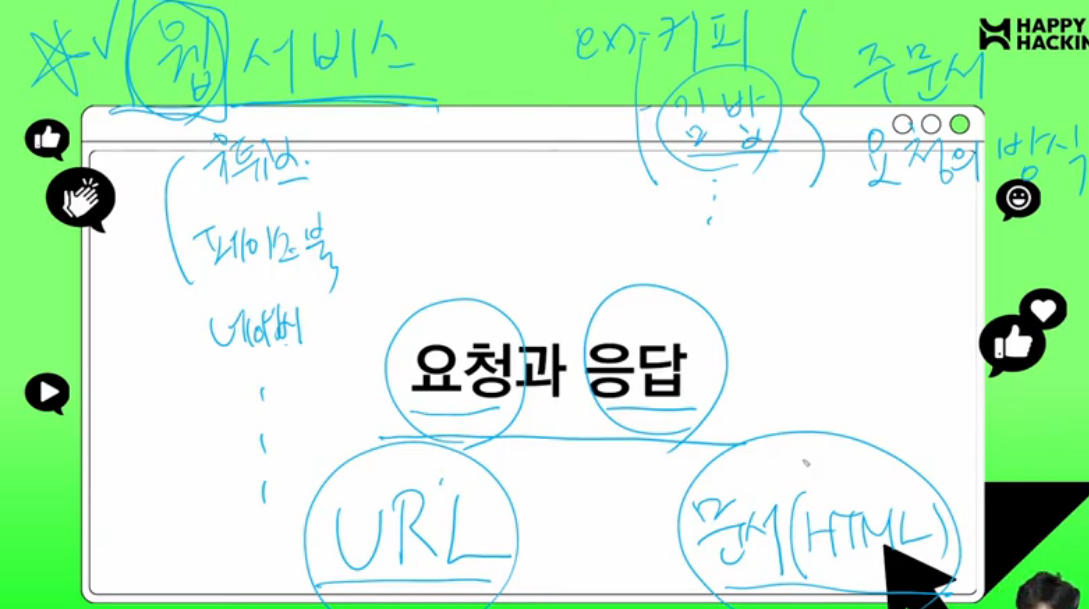 웹 서비스
ex) 커피
김밥
주문서
요청의 방식
HAPPY
HACKIN
유튜브
페이스북
네이버
요청과 응답
URL
문서(HTML)